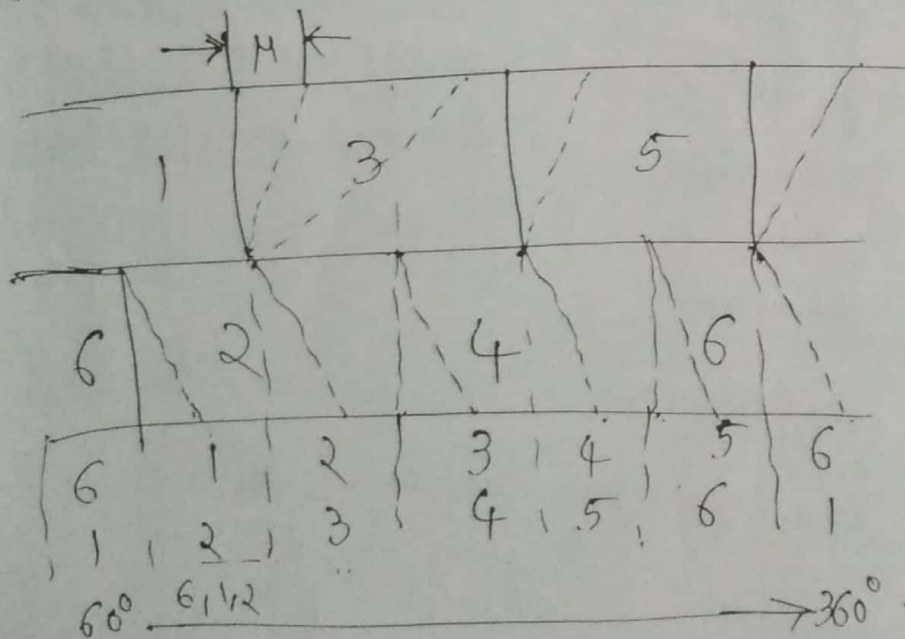 μ
1 3 5
6 2 4 6
6 1 2 3 4 5 6
1 2 3 4 5 6 1
6,1,2
60° 360°